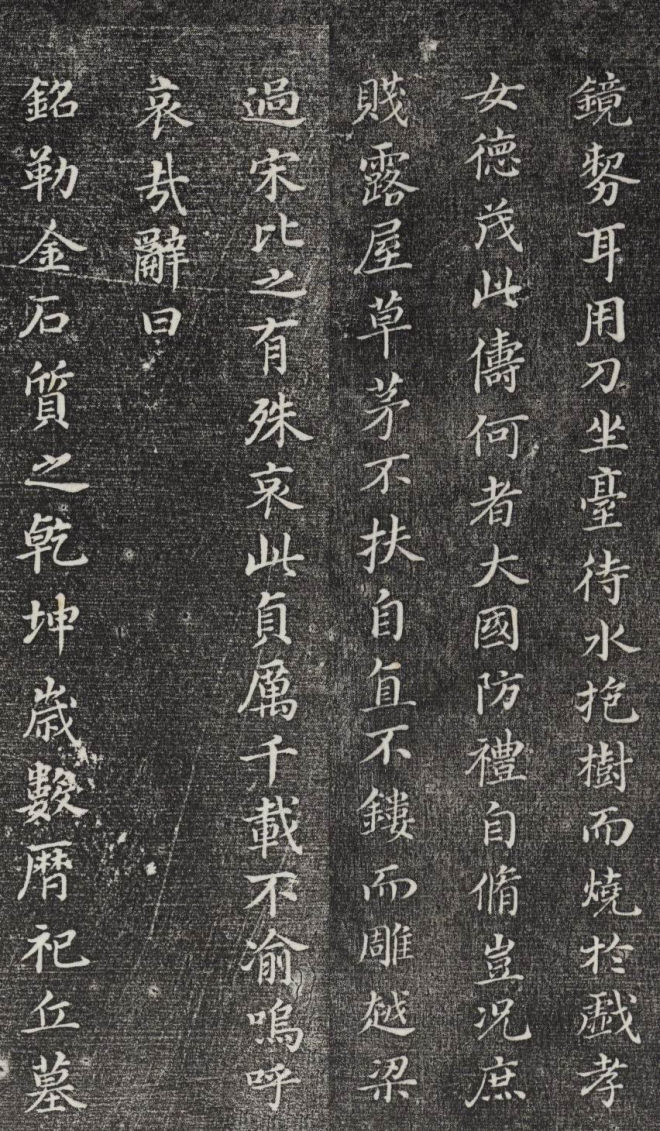 鏡剺耳用刀坐臺待水抱樹而燒於戲孝
女德茂此儔何者大國防禮自脩豈況庶
賤露屋草茅不扶自直不鏤而雕越梁
過宋比之有殊哀此貞厲千載不渝嗚呼
哀哉辭曰
銘勒金石質之乾坤歲數曆祀丘墓